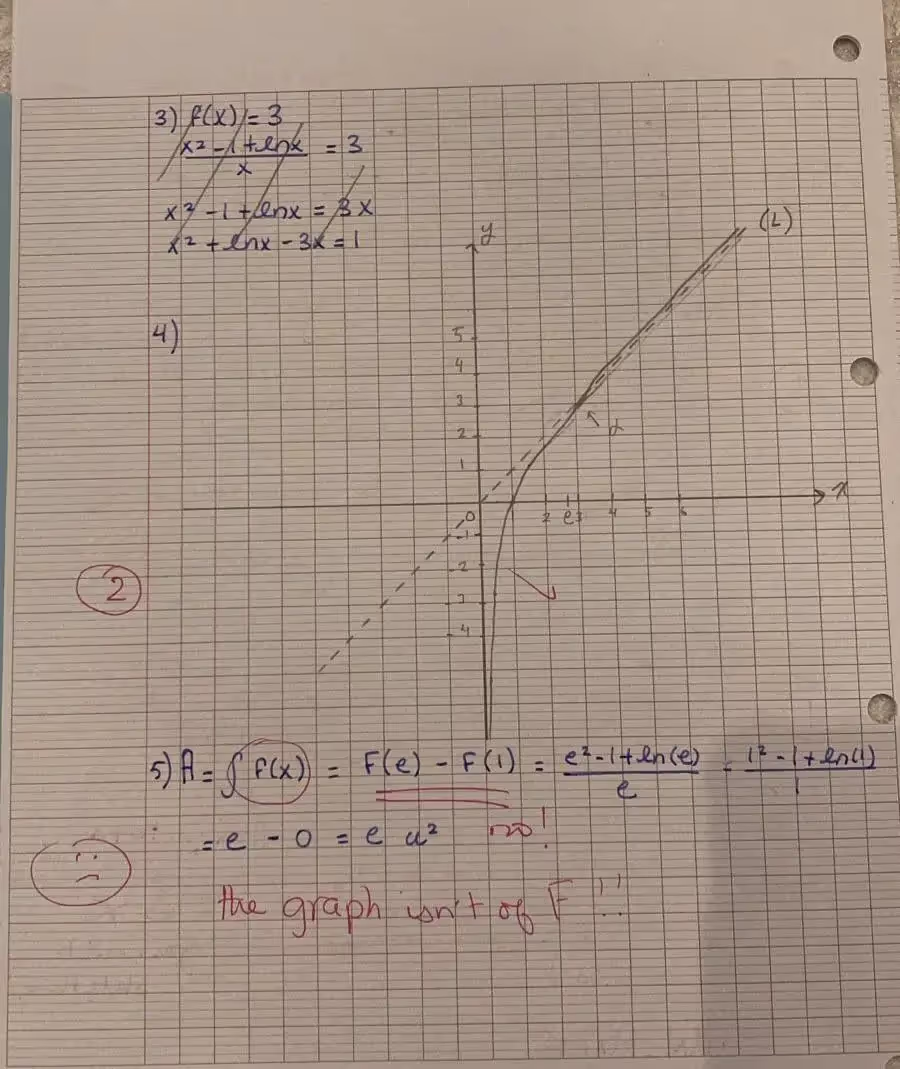 3) f(x) = 3
x² - 1 + lnx / x = 3
x² - 1 + lnx = 3x
x² + lnx - 3x = 1
y
(L)
4)
5
4
3
2
1
α
x
0
2 e 3 4 5 6
-1
-2
3
-4
2
5) A = ∫ f(x) = F(e) - F(1) = e² - 1 + ln(e) / e - 1² - 1 + ln(1) / 1
= e - 0 = e u² no!
the graph isn't of F !!